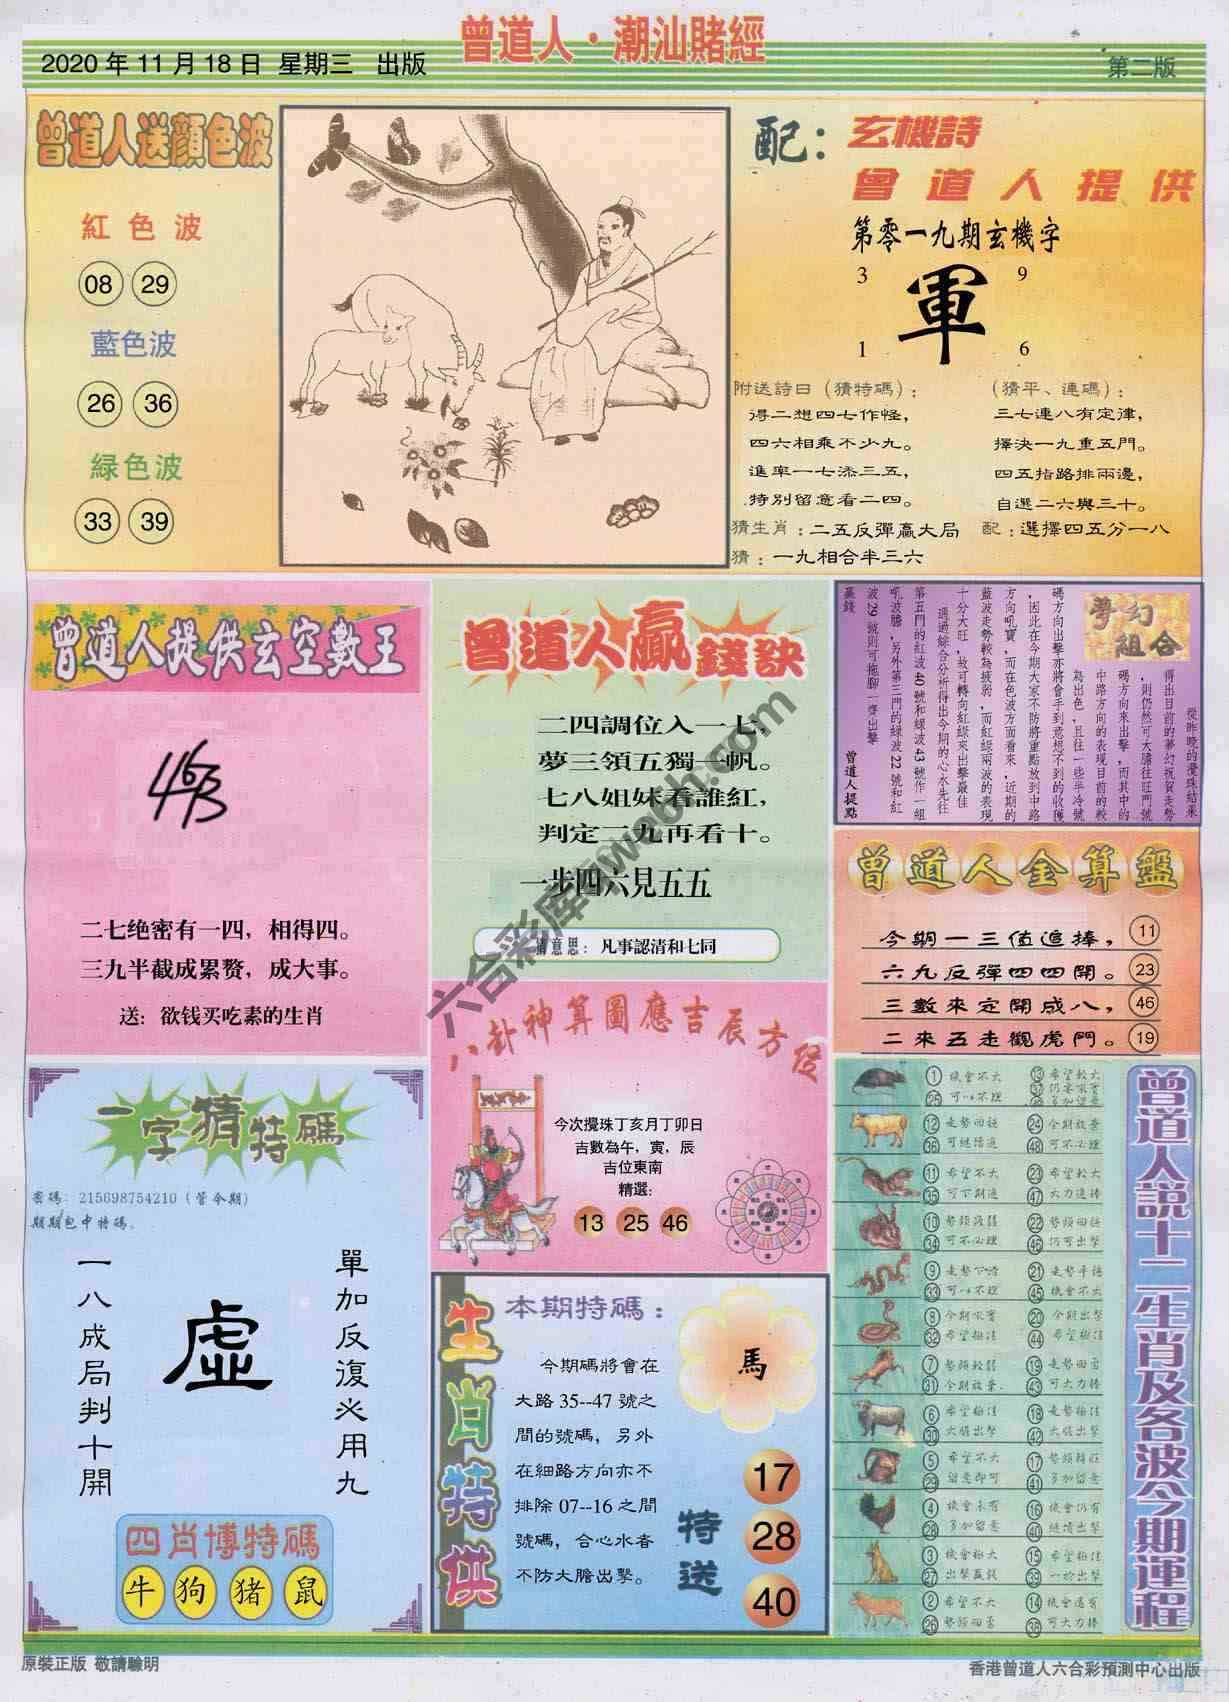 曾道人·潮汕賭經
2020 年 11 月 18 日 星期三 出版
第二版
曾道人送顔色波
紅色波
08 29
藍色波
26 36
緑色波
33 39
配：玄機詩
曾道人提供
第零一九期玄機字
3 9
軍
1 6
附送詩曰（猜特碼）：
得二想四七作怪，
四六相乘不少九。
進率一七添三五，
特別留意看二四。
（猜平、連碼）：
三七連八有定律，
擇決一九重五門。
四五指路排兩邊，
自選二六與三十。
猜生肖：二五反彈贏大局 配：選擇四五分一八
猜：一九相合半三六
曾道人提供玄空數王
463
二七绝密有一四，相得四。
三九半截成累赘，成大事。
送：欲钱买吃素的生肖
曾道人贏錢訣
二四調位入一七，
夢三領五獨一帆。
七八姐妹看誰紅，
判定二九再看十。
一步四六見五五
猜意思：凡事認清和七同
夢幻組合
從昨晚的攪珠結果
得出目前的夢幻祝賀走勢
，則仍然可大膽往旺門號
碼方向來出擊，而其中的
中路方向的表現目前的較
為出色，且往一些半冷號
碼方向出擊亦將會手到意想不到的收穫
，因此在今期大家不防將重點放到中路
方向吼寶，而在色波方面看來，近期的
藍波走勢較為疲弱，而紅緑兩波的表現
十分大旺，故可轉向紅緑來出擊最佳
通過綜合分析得出今期的心水先往
第五門的紅波 40 號和緑波 43 號作一組
吼波膽，另外第三門的緑波 22 號和紅
波 29 號則可拖腳一齊出擊
贏錢
曾道人提點
曾道人金算盤
今期一三值追捧， 11
六九反彈四四開。 23
三數來定開成八， 46
二來五走觀虎門。 19
八卦神算圖應吉辰方位
今次攪珠丁亥月丁卯日
吉數為午，寅，辰
吉位東南
精選：
13 25 46
一字猜特碼
密碼：215698754210（管今期）
期期包中特碼。
單加反復必用九
虛
一八成局判十開
四肖博特碼
牛 狗 猪 鼠
生肖特供
本期特碼：
今期碼將會在
大路 35--47 號之
間的號碼，另外
在細路方向亦不
排除 07--16 之間
號碼，合心水者
不防大膽出擊。
馬
特送
17
28
40
曾道人説十二生肖及各波今期運程
① 機會不大 ⑬ 希望較大
㉕ 可以不理
⑫ 走勢回穩 ㉔ 今期放棄
㊱ 可繼續追 ㊽ 可不必理
⑪ 希望不大 ㉓ 希望較大
㉟ 可下期追 ㊼ 大力追捧
⑩ 勢頭疲弱 ㉒ 勢頭回穩
㉞ 可不必理 ㊻ 仍可出擊
⑨ 走勢下滑 ㉑ 走勢平穩
㉝ 可以不理 ㊺ 機會不大
⑧ 今期吼寶 ⑳ 今期出擊
㉜ 希望極佳 ㊹ 希望極佳
⑦ 勢頭較弱 ⑲ 走勢回勇
㉛ 今期放棄 ㊸ 可大力捧
⑥ 希望極佳 ⑱ 走勢極佳
㉚ 大膽出擊 ㊷ 大膽出擊
⑤ 希望不大 ⑰ 勢頭轉旺
㉙ 留意即可 ㊶ 多加留意
④ 機會未有 ⑯ 機會仍有
㉘ 多加留意 ㊵ 繼續出擊
③ 機會極大 ⑮ 希望極佳
㉗ 出擊贏錢 ㊴ 一於出擊
② 希望不大 ⑭ 機會還有
㉖ 勢頭回勇 ㊳ 可大力捧
六合彩库wabh.com
原裝正版 敬請驗明
香港曾道人六合彩預測中心出版